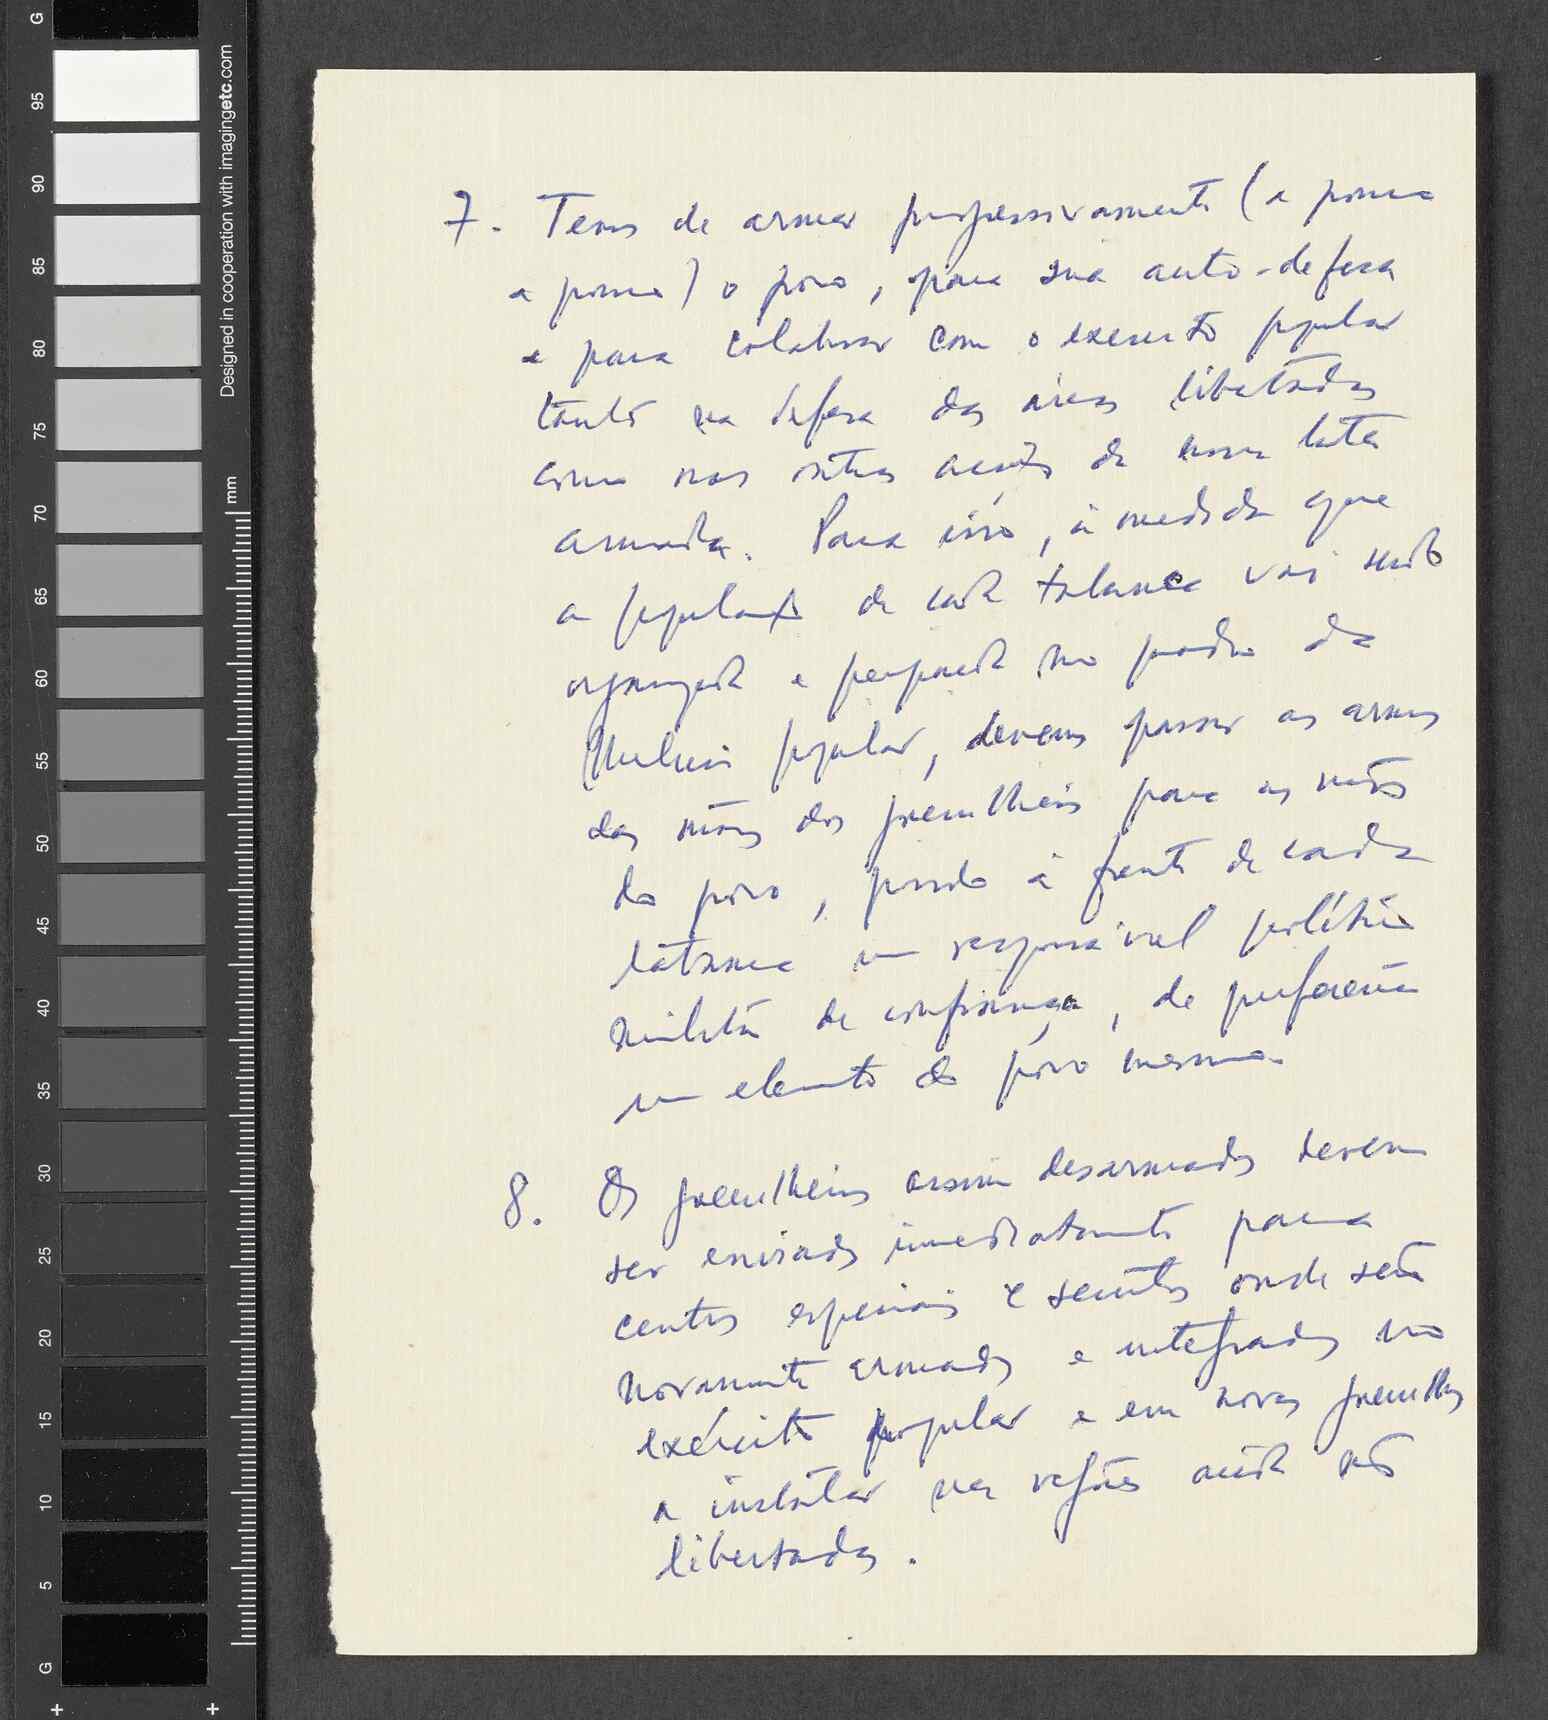 G
95
90
85
80
75
70
65
60
55
50
45
40
35
30
25
20
15
10
5
G
Designed in cooperation with imagingetc.com
mm
7. Temos de armar progressivamente (a pouco
a pouco) o povo, para sua auto-defesa
e para colaborar com o exercito popular
tanto na defesa das áreas libertadas
como nas outras acções da nossa luta
armada. Para isso, à medida que
a população de cada tabanca vai sendo
organizada e preparada no quadro da
Milícia popular, devemos passar as armas
das mãos dos guerrilheiros para as mãos
do povo, pondo à frente de cada
tabanca um responsável político
militar de confiança, de preferência
um elemento do povo mesmo.
8. Os guerrilheiros assim desarmados devem
ser enviados imediatamente para
centros especiais e secretos onde serão
novamente armados e integrados no
exército popular e em novas guerrilhas
a instalar nas regiões ainda não
libertadas.